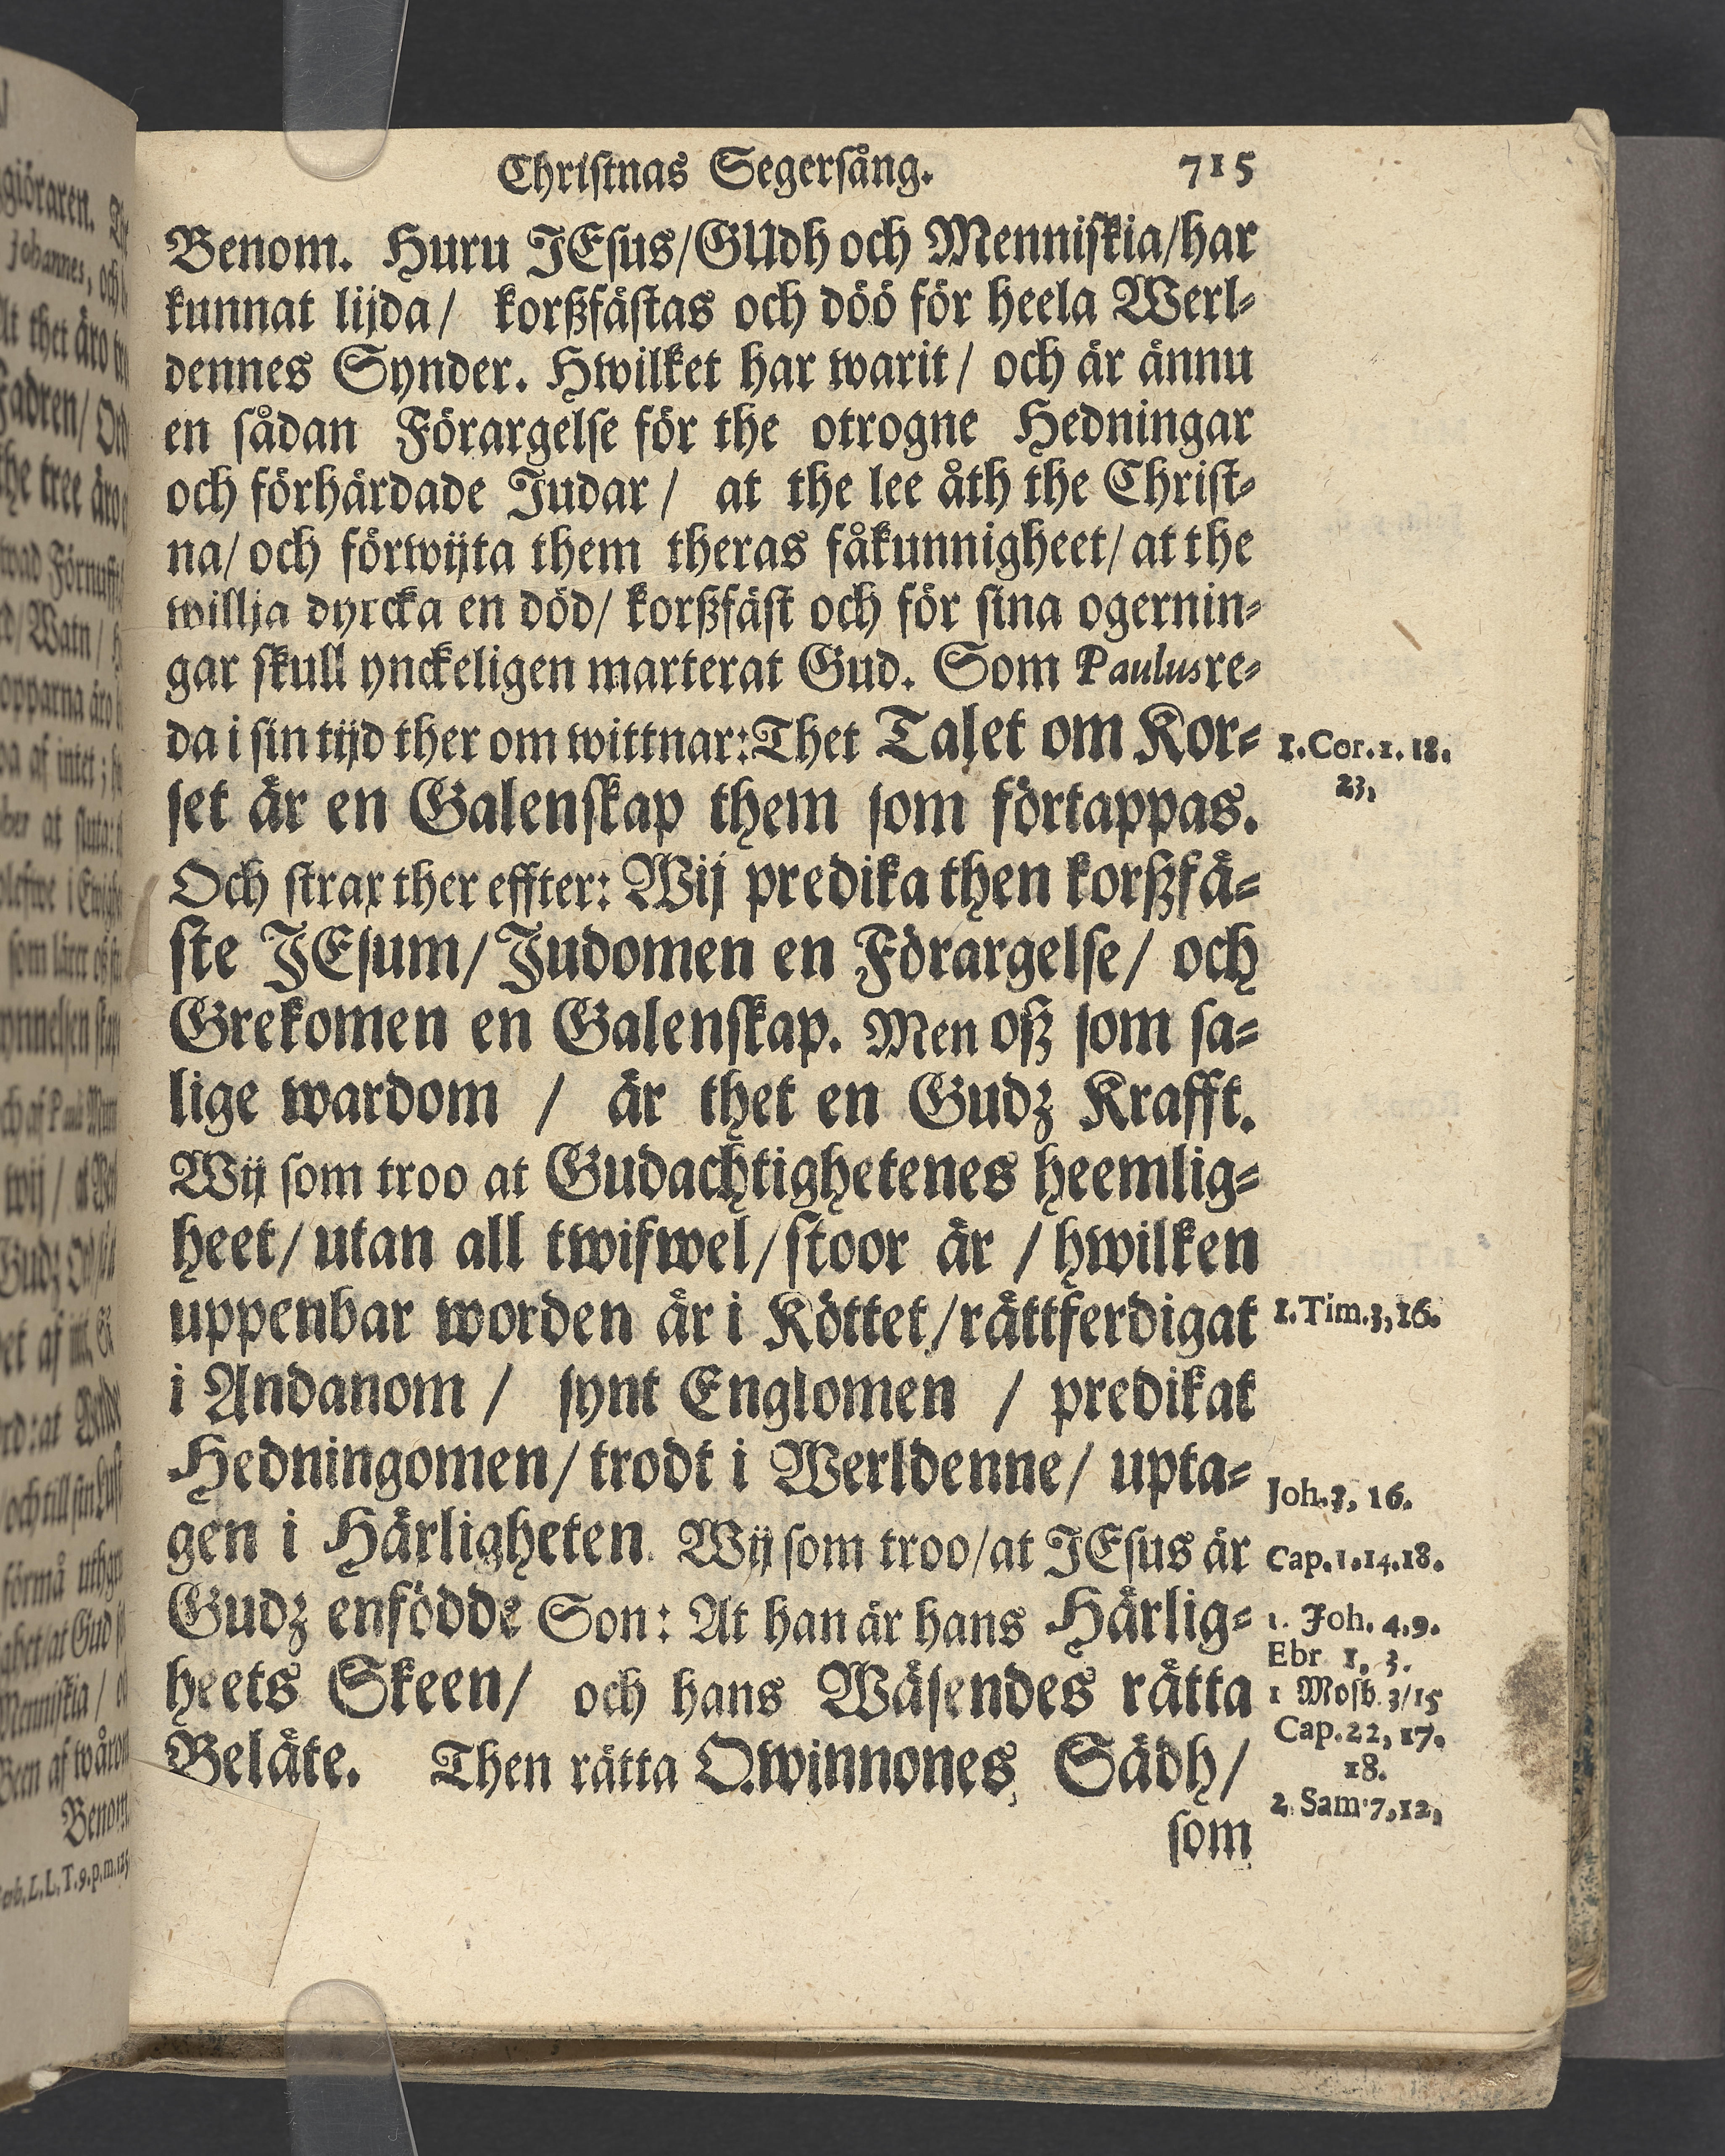 Christnas Segersång. 715
Benom. Huru JEsus/GUdh och Menniskia/har
kunnat lijda/ korßfästas och döö för heela Werl-
dennes Synder. Hwilket har warit/ och är ännu
en sådan Förargelse för the otrogne Hedningar
och förhärdade Judar/ at the lee åth the Christ-
na/ och förwijta them theras fåkunnigheet/ at the
willja dyrcka en död/ korßfäst och för sina ogernin-
gar skull ynckeligen marterat Gud. Som Paulus re-
da i sin tijd ther om wittnar: Thet Talet om Kor-
1. Cor. 1. 18.
23.
set är en Galenskap them som förtappas.
Och strax ther effter: Wij predika then korßfä-
ste JEsum/ Judomen en Förargelse/ och
Grekomen en Galenskap. Men oß som sa-
lige wardom / är thet en Gudz Krafft.
Wij som troo at Gudachtighetenes heemlig-
heet/ utan all twifwel/ stoor är / hwilken
uppenbar worden är i Köttet/ rättferdigat
1. Tim. 3, 16.
i Andanom / synt Englomen / predikat
Hedningomen/ trodt i Werldenne/ upta-
Joh. 3, 16.
gen i Härligheten. Wij som troo/at JEsus är
Cap. 1. 14. 18.
Gudz enfödde Son: At han är hans Härlig-
1. Joh. 4. 9.
Ebr 1, 3.
heets Skeen/ och hans Wäsendes rätta
1 Mosb. 3/15
Cap. 22, 17.
18.
Beläte. Then rätta Qwinnones Sädh/
2. Sam. 7, 12,
som